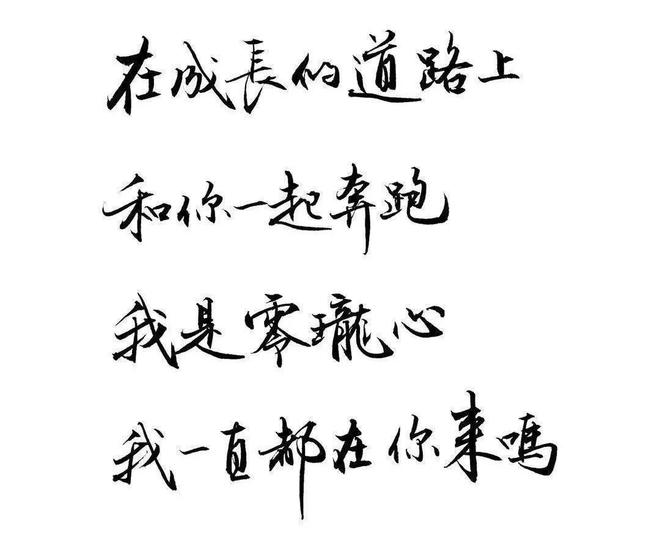 在成長的道路上
和你一起奔跑
我是零瓏心
我一直都在你来嗎